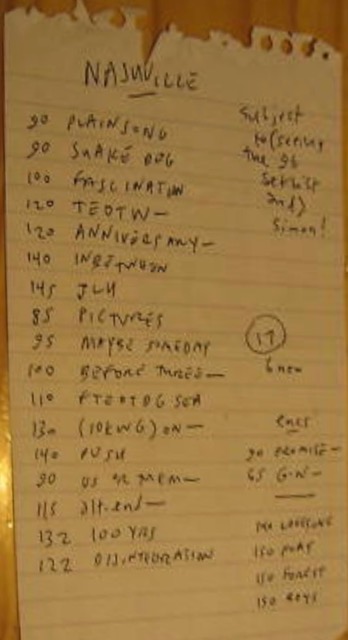 NASHVILLE
90 PLAINSONG
90 SNAKE DOG
100 FASCINATION
120 TEOTW —
120 ANNIVERSARY —
140 INBETWEEN
145 JLH
85 PICTURES
95 MAYBE SOMEDAY
100 BEFORE THREE —
110 FTEOTDG SEA
130 (10KWG) ON —
140 PUSH
90 US OR MEM —
115 alt.end —
132 100 YRS
122 DISINTEGRATION
Subject
to (seeing
the 96
setlist
and)
Simon!
17
6 new
encs
90 PROMISE —
65 G-N —
140 LOVESONG
150 PLAY
150 FOREST
150 BOYS